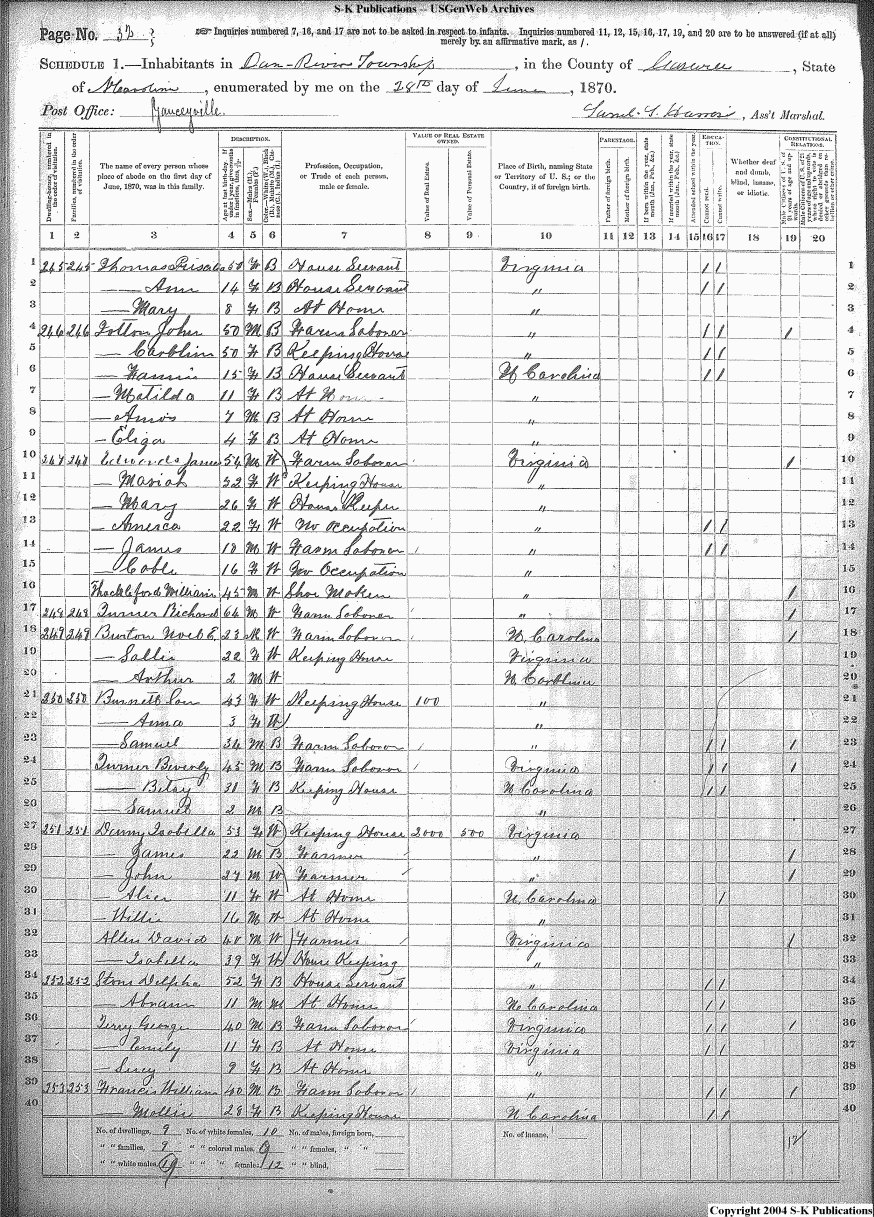 S-K Publications -- USGenWeb Archives
Page No. 32
Inquiries numbered 7, 16, and 17 are not to be asked in respect to infants. Inquiries numbered 11, 12, 15, 16, 17, 19, and 20 are to be answered (if at all)
merely by an affirmative mark, as /.
SCHEDULE 1.—Inhabitants in Dan-River Township, in the County of Caswell, State
of N Carolina, enumerated by me on the 28th day of June, 1870.
Post Office: Yanceyville
Saml. S. Harris, Ass't Marshal.
DESCRIPTION. VALUE OF REAL ESTATE OWNED. PARENTAGE. EDUCATION. CONSTITUTIONAL RELATIONS.
Dwelling-houses, numbered in the order of visitation.
Families, numbered in the order of visitation.
The name of every person whose place of abode on the first day of June, 1870, was in this family.
Profession, Occupation, or Trade of each person, male or female.
Value of Real Estate.
Value of Personal Estate.
Place of Birth, naming State or Territory of U. S.; or the Country, if of foreign birth.
Father of foreign birth.
Mother of foreign birth.
If born within the year, state month (Jan., Feb., &c.)
If married within the year, state month (Jan., Feb., &c.)
Attended school within the year.
Cannot read.
Cannot write.
Whether deaf and dumb, blind, insane, or idiotic.
1 2 3 4 5 6 7 8 9 10 11 12 13 14 15 16 17 18 19 20
1 245 245 Thomas 50 F B House Servant Virginia / / 1
2 — Ann 14 F B House Servant " / / 2
3 — Mary 8 F B At Home " 3
4 246 246 Totton John 50 M B Farm Laborer " / / / 4
5 — Caroline 50 F B Keeping House " / / 5
6 — Fannie 15 F B House Servant N Carolina / / 6
7 — Matilda 11 F B At Home " 7
8 — Amos 7 M B At Home " 8
9 — Eliza 4 F B At Home " 9
10 247 247 Edwards James 54 M W Farm Laborer Virginia / 10
11 — Mariah 52 F W Keeping House " 11
12 — Mary 26 F W House Keeper " 12
13 — America 22 F W No Occupation " / / 13
14 — James 18 M W Farm Laborer " / / 14
15 — 16 F W No Occupation " 15
16 Shackleford William 45 M W Shoe Maker " / 16
17 248 248 Turner Richard 64 M W Farm Laborer " / 17
18 249 249 Burton 23 M W Farm Laborer N Carolina / 18
19 — Sallie 22 F W Keeping House Virginia 19
20 — Arthur 2 M W N Carolina 20
21 250 250 Burnett 43 F W Keeping House 100 " 21
22 — Anna 3 F W " 22
23 — Samuel 34 M B Farm Laborer " / / / 23
24 Turner Beverly 45 M B Farm Laborer Virginia / / / 24
25 — Betsy 31 F B Keeping House N Carolina / / 25
26 — Samuel 2 M B " 26
27 251 251 Denny Isabella 53 F W Keeping House 2000 500 Virginia 27
28 — James 22 M B Farmer " / 28
29 — John 27 M W Farmer " / 29
30 — Alice 11 F W At Home N Carolina / 30
31 — Willie 16 M W At Home " 31
32 Allen David 40 M W Farmer Virginia / 32
33 — Isabella 39 F W House Keeping " 33
34 252 252 Stone Delpha 52 F B House Servant " / / 34
35 — Abram 11 M M At Home N Carolina / / 35
36 Terry George 40 M B Farm Laborer Virginia / / / 36
37 — Emily 11 F B At Home Virginia / / 37
38 — Lucy 9 F B At Home " 38
39 253 253 Francis William 40 M B Farm Laborer " / / / 39
40 — Mollie 28 F B Keeping House N Carolina / / 40
No. of dwellings, 9 No. of white females, 10 No. of males, foreign born, No. of insane, 12
" " families, 9 " " colored males, 9 " " females, " "
" " white males, " " " females, 12 " " blind,
Copyright 2004 S-K Publications